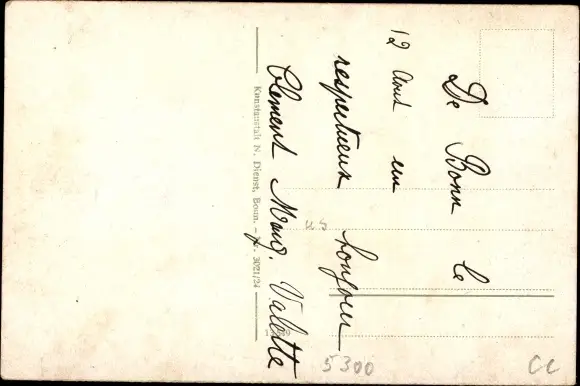 De Bonn le
12 Aout un
respectueux bonjour
Clement Marg. Valette
Kunstanstalt N. Dienst, Bonn. – Nr. 3021/24
5300
CC